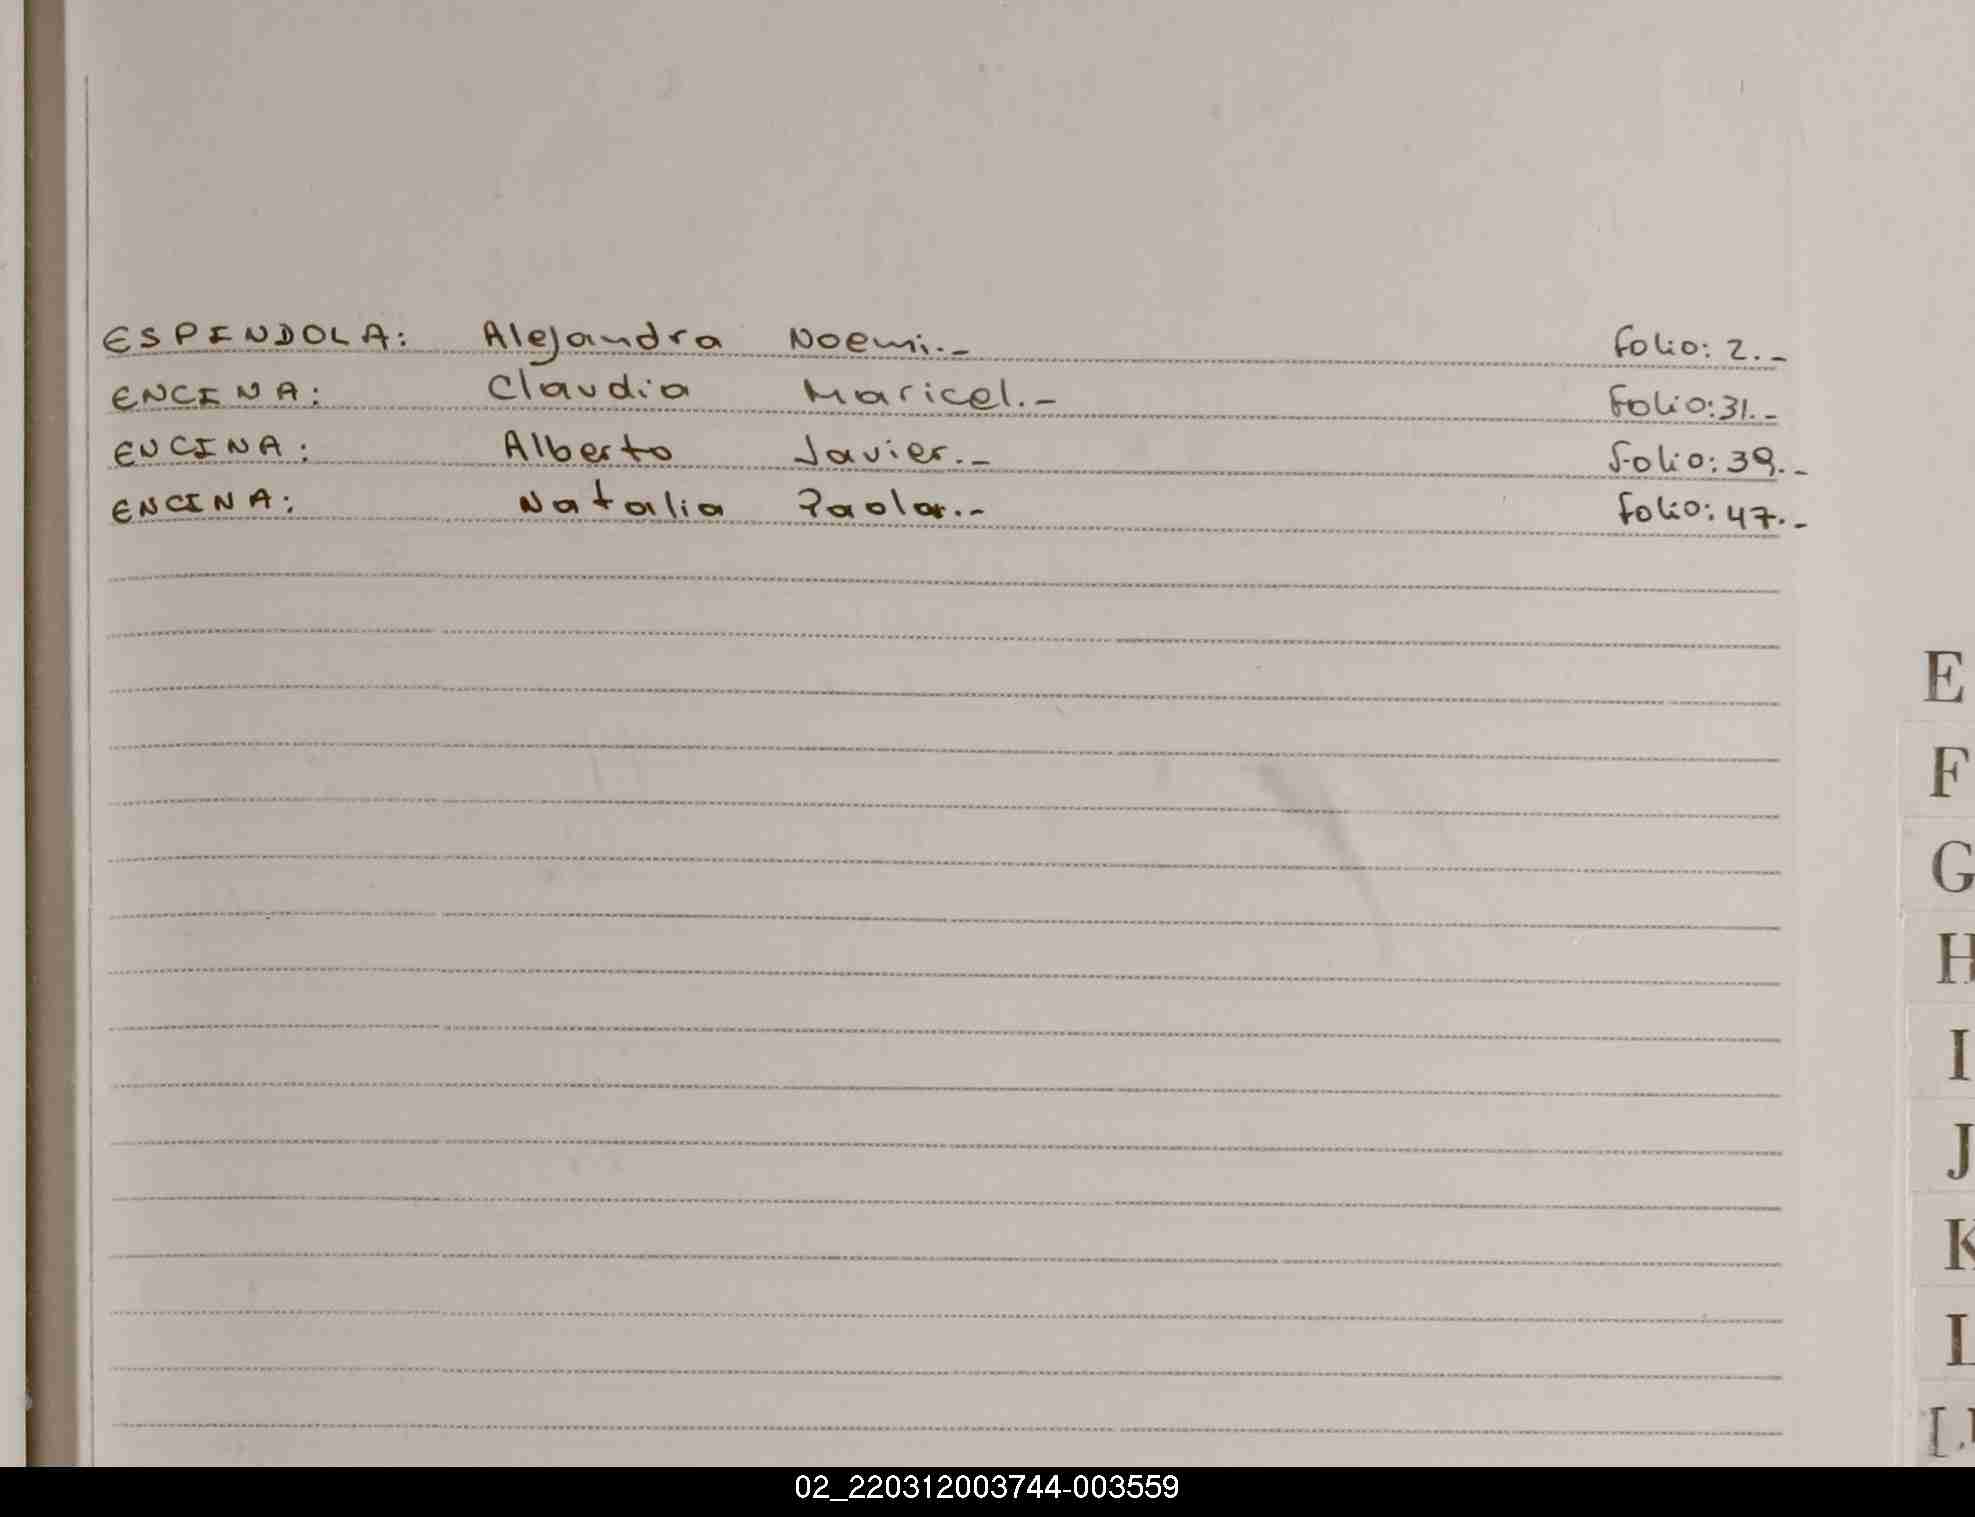 ESPINDOLA: Alejandra Noemi.- Folio: 2.-
ENCINA: Claudia Maricel.- Folio: 31.-
ENCINA: Alberto Javier.- Folio: 39.-
ENCINA: Natalia Paola.- Folio: 47.-
E
F
G
H
I
J
K
L
02_220312003744-003559